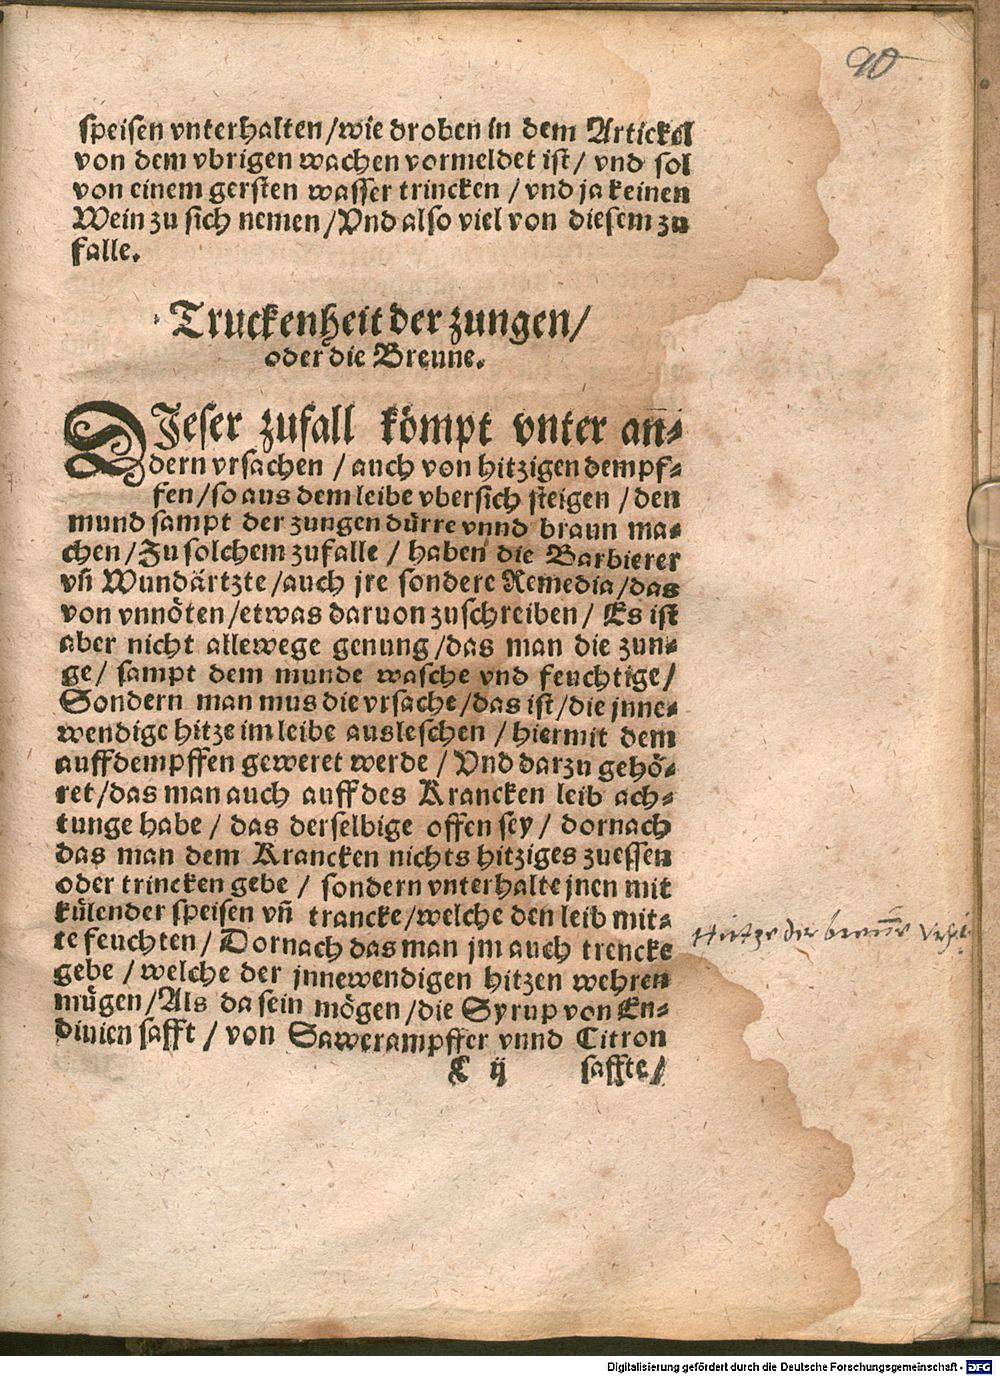 90
speisen vnterhalten/wie droben in dem Artickel
von dem vbrigen wachen vormeldet ist/ vnd sol
von einem gersten wasser trincken / vnd ja keinen
Wein zu sich nemen/Vnd also viel von diesem zu
falle.
Truckenheit der zungen/
oder die Breune.
DJeser zufall kömpt vnter an⸗
dern vrsachen / auch von hitzigen dempf⸗
fen/so aus dem leibe vbersich steigen / den
mund sampt der zungen dürre vnnd braun ma⸗
chen/Zu solchem zufalle / haben die Barbierer
vñ Wundärtzte/auch jre sondere Remedia/das
von vnnöten/etwas daruon zuschreiben/ Es ist
aber nicht allewege genung/das man die zun⸗
ge/ sampt dem munde wasche vnd feuchtige/
Sondern man mus die vrsache/das ist/die jnne⸗
wendige hitze im leibe ausleschen / hiermit dem
auffdempffen geweret werde / Vnd darzu gehö⸗
ret/das man auch auff des Krancken leib ach⸗
tunge habe / das derselbige offen sey/ dornach
das man dem Krancken nichts hitziges zuessen
oder trincken gebe / sondern vnterhalte jnen mit
külender speisen vñ trancke/welche den leib mit⸗
te feuchten/ Dornach das man jm auch trencke
gebe / welche der jnnewendigen hitzen wehren
mügen/Als da sein mögen/die Syrup von En⸗
diuien safft / von Sawerampffer vnnd Citron
C ij saffte/
Hitze der breüne
Digitalisierung gefördert durch die Deutsche Forschungsgemeinschaft - DFG